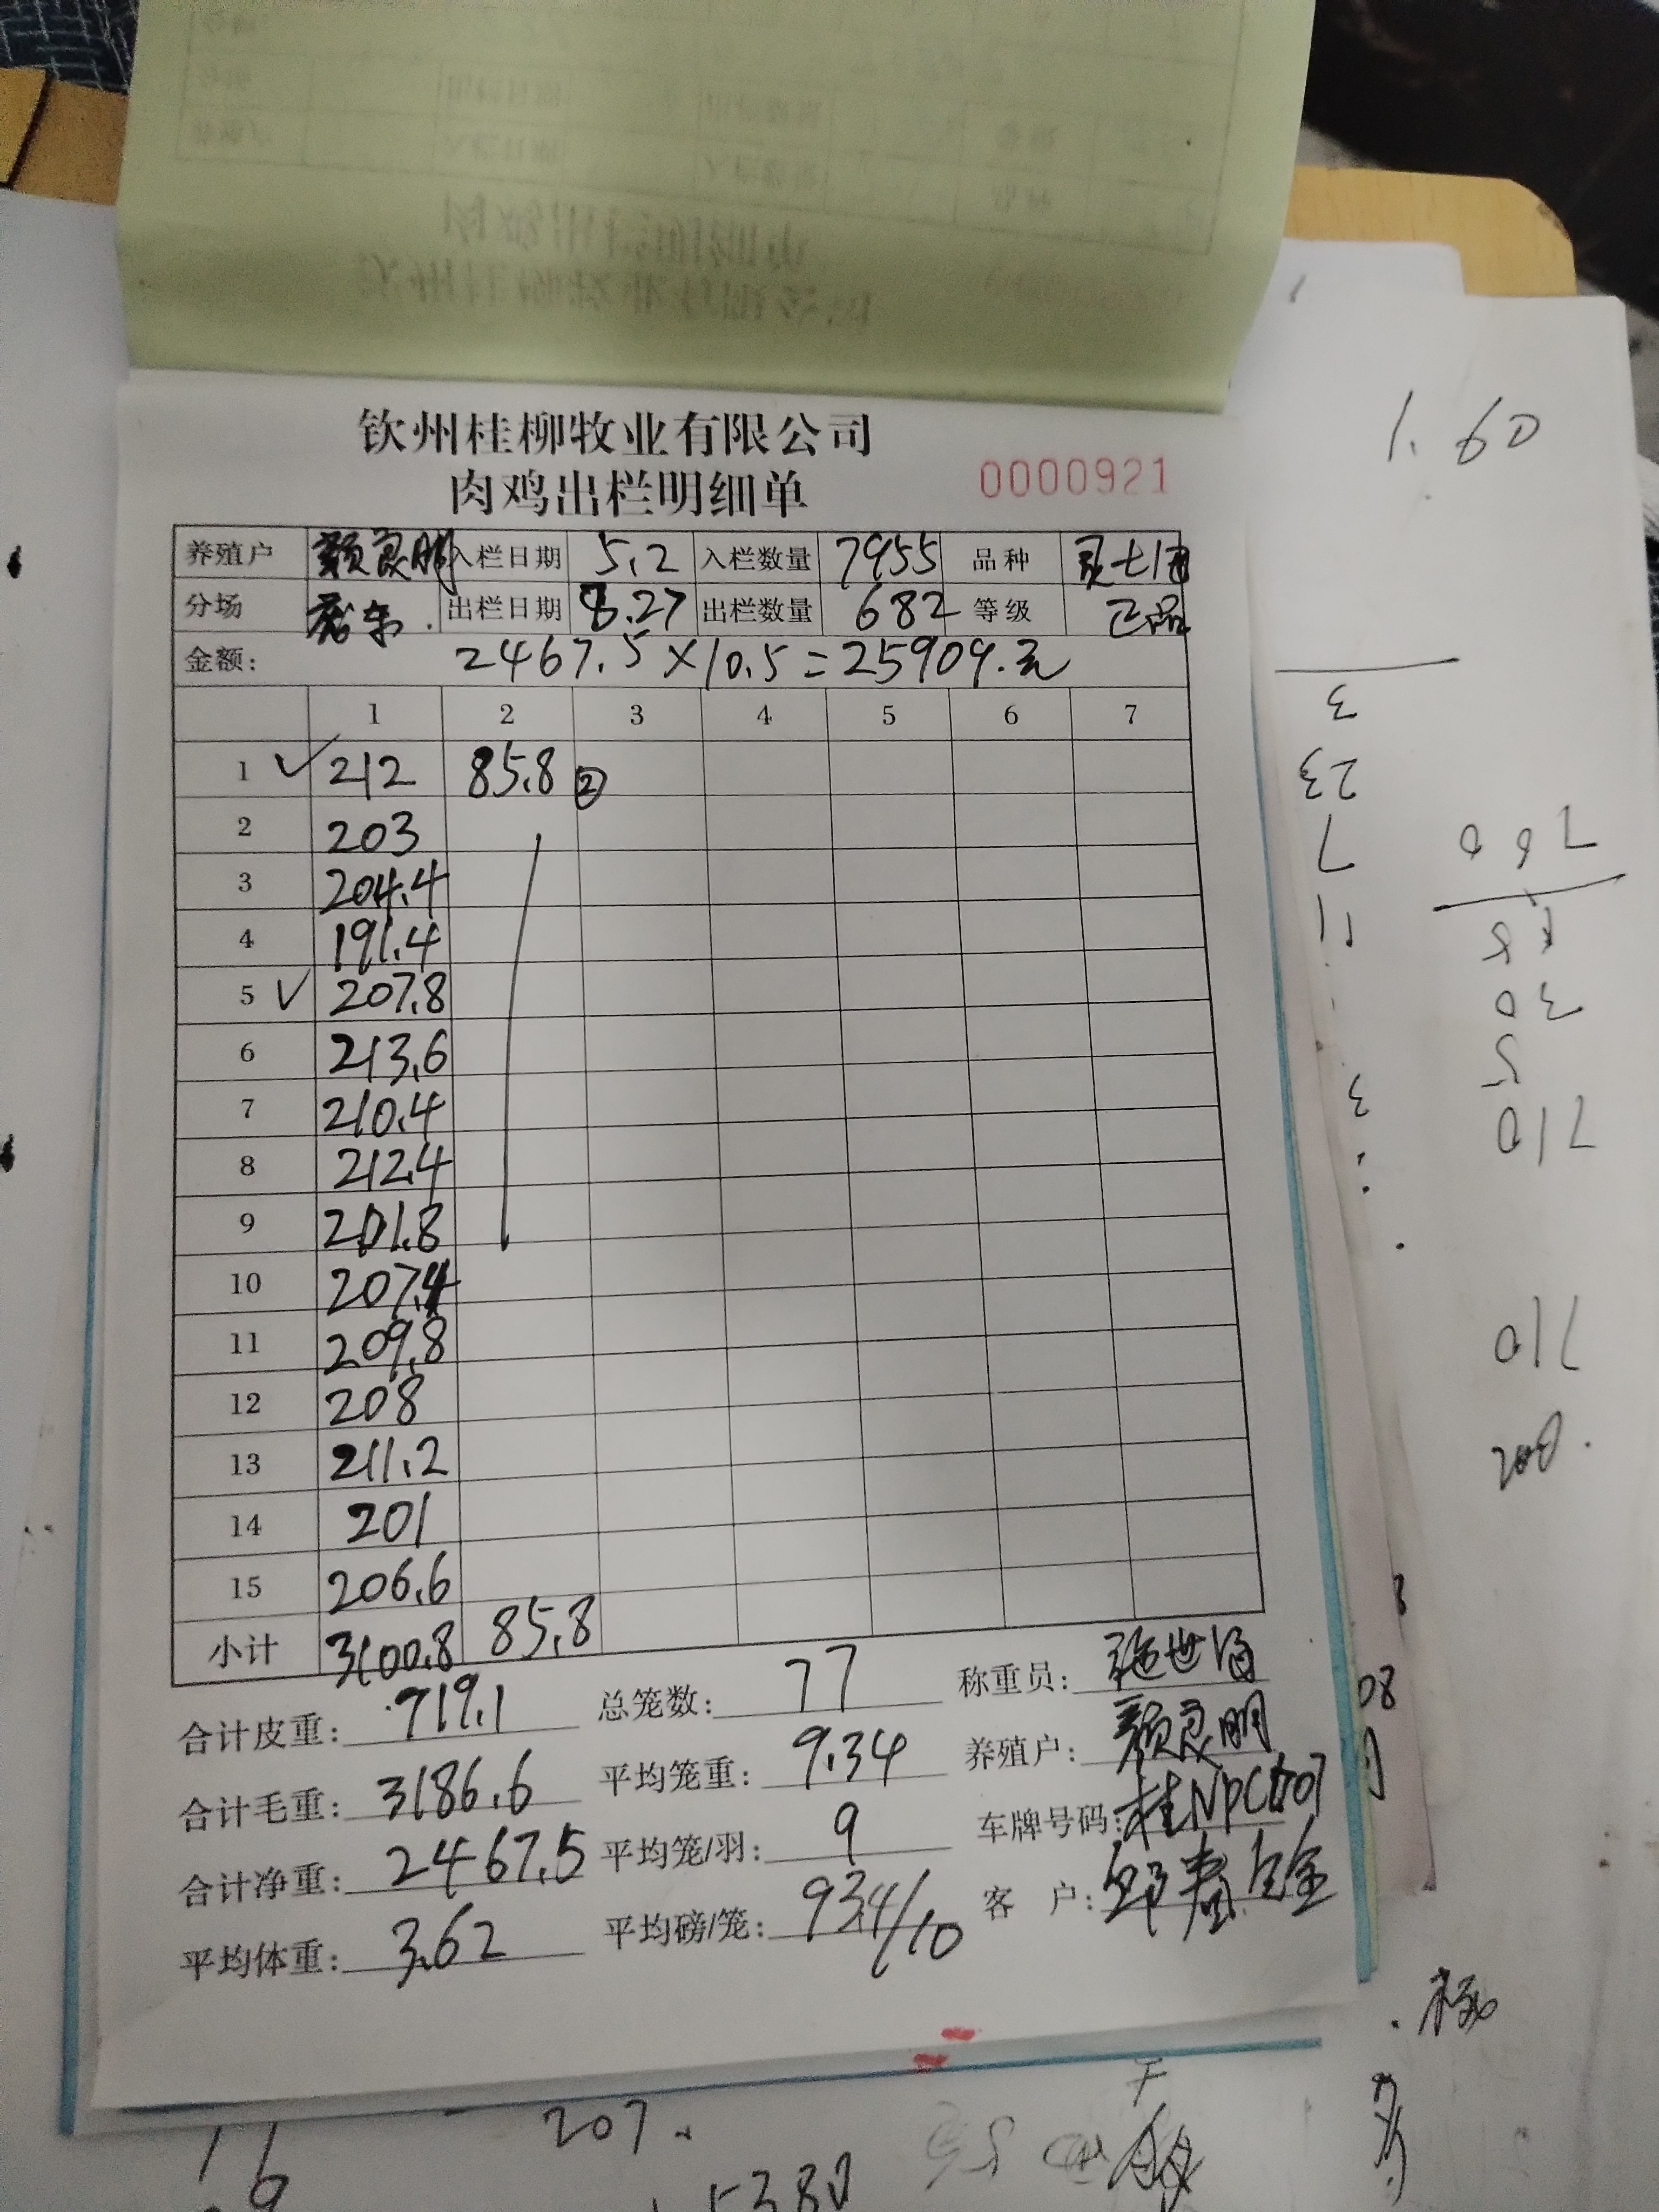 钦州桂柳牧业有限公司
肉鸡出栏明细单 0000921
养殖户 颜良明 入栏日期 5.2 入栏数量 7955 品种
分场 出栏日期 8.27 出栏数量 682 等级 正品
金额: 2467.5×10.5=25909.元
1 2 3 4 5 6 7
1 ✓ 212 85.8 ②
2 203
3 204.4
4 191.4
5 ✓ 207.8
6 213.6
7 210.4
8 212.4
9 201.8
10 207.4
11 209.8
12 208
13 211.2
14 201
15 206.6
小计 3100.8 85.8
合计皮重: 719.1 总笼数: 77 称重员:
合计毛重: 3186.6 平均笼重: 9.34 养殖户: 颜良明
合计净重: 2467.5 平均笼/羽: 9 车牌号码:
平均体重: 3.62 平均磅/笼: 93.4/10 客 户:
1.60
3
23
7
11
700
30
5
710
3
710
08
207.
16
5380